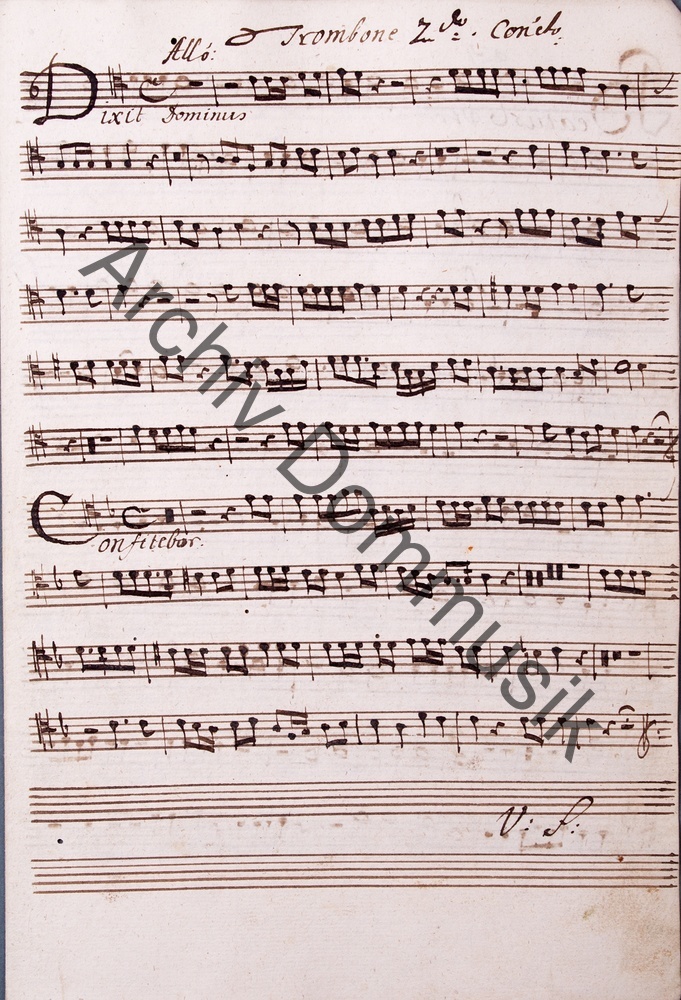 Trombone 2do. Conc̃to.
Allo:
Dixit Dominus
Confitebor.
V: S:
Archiv Dommusik